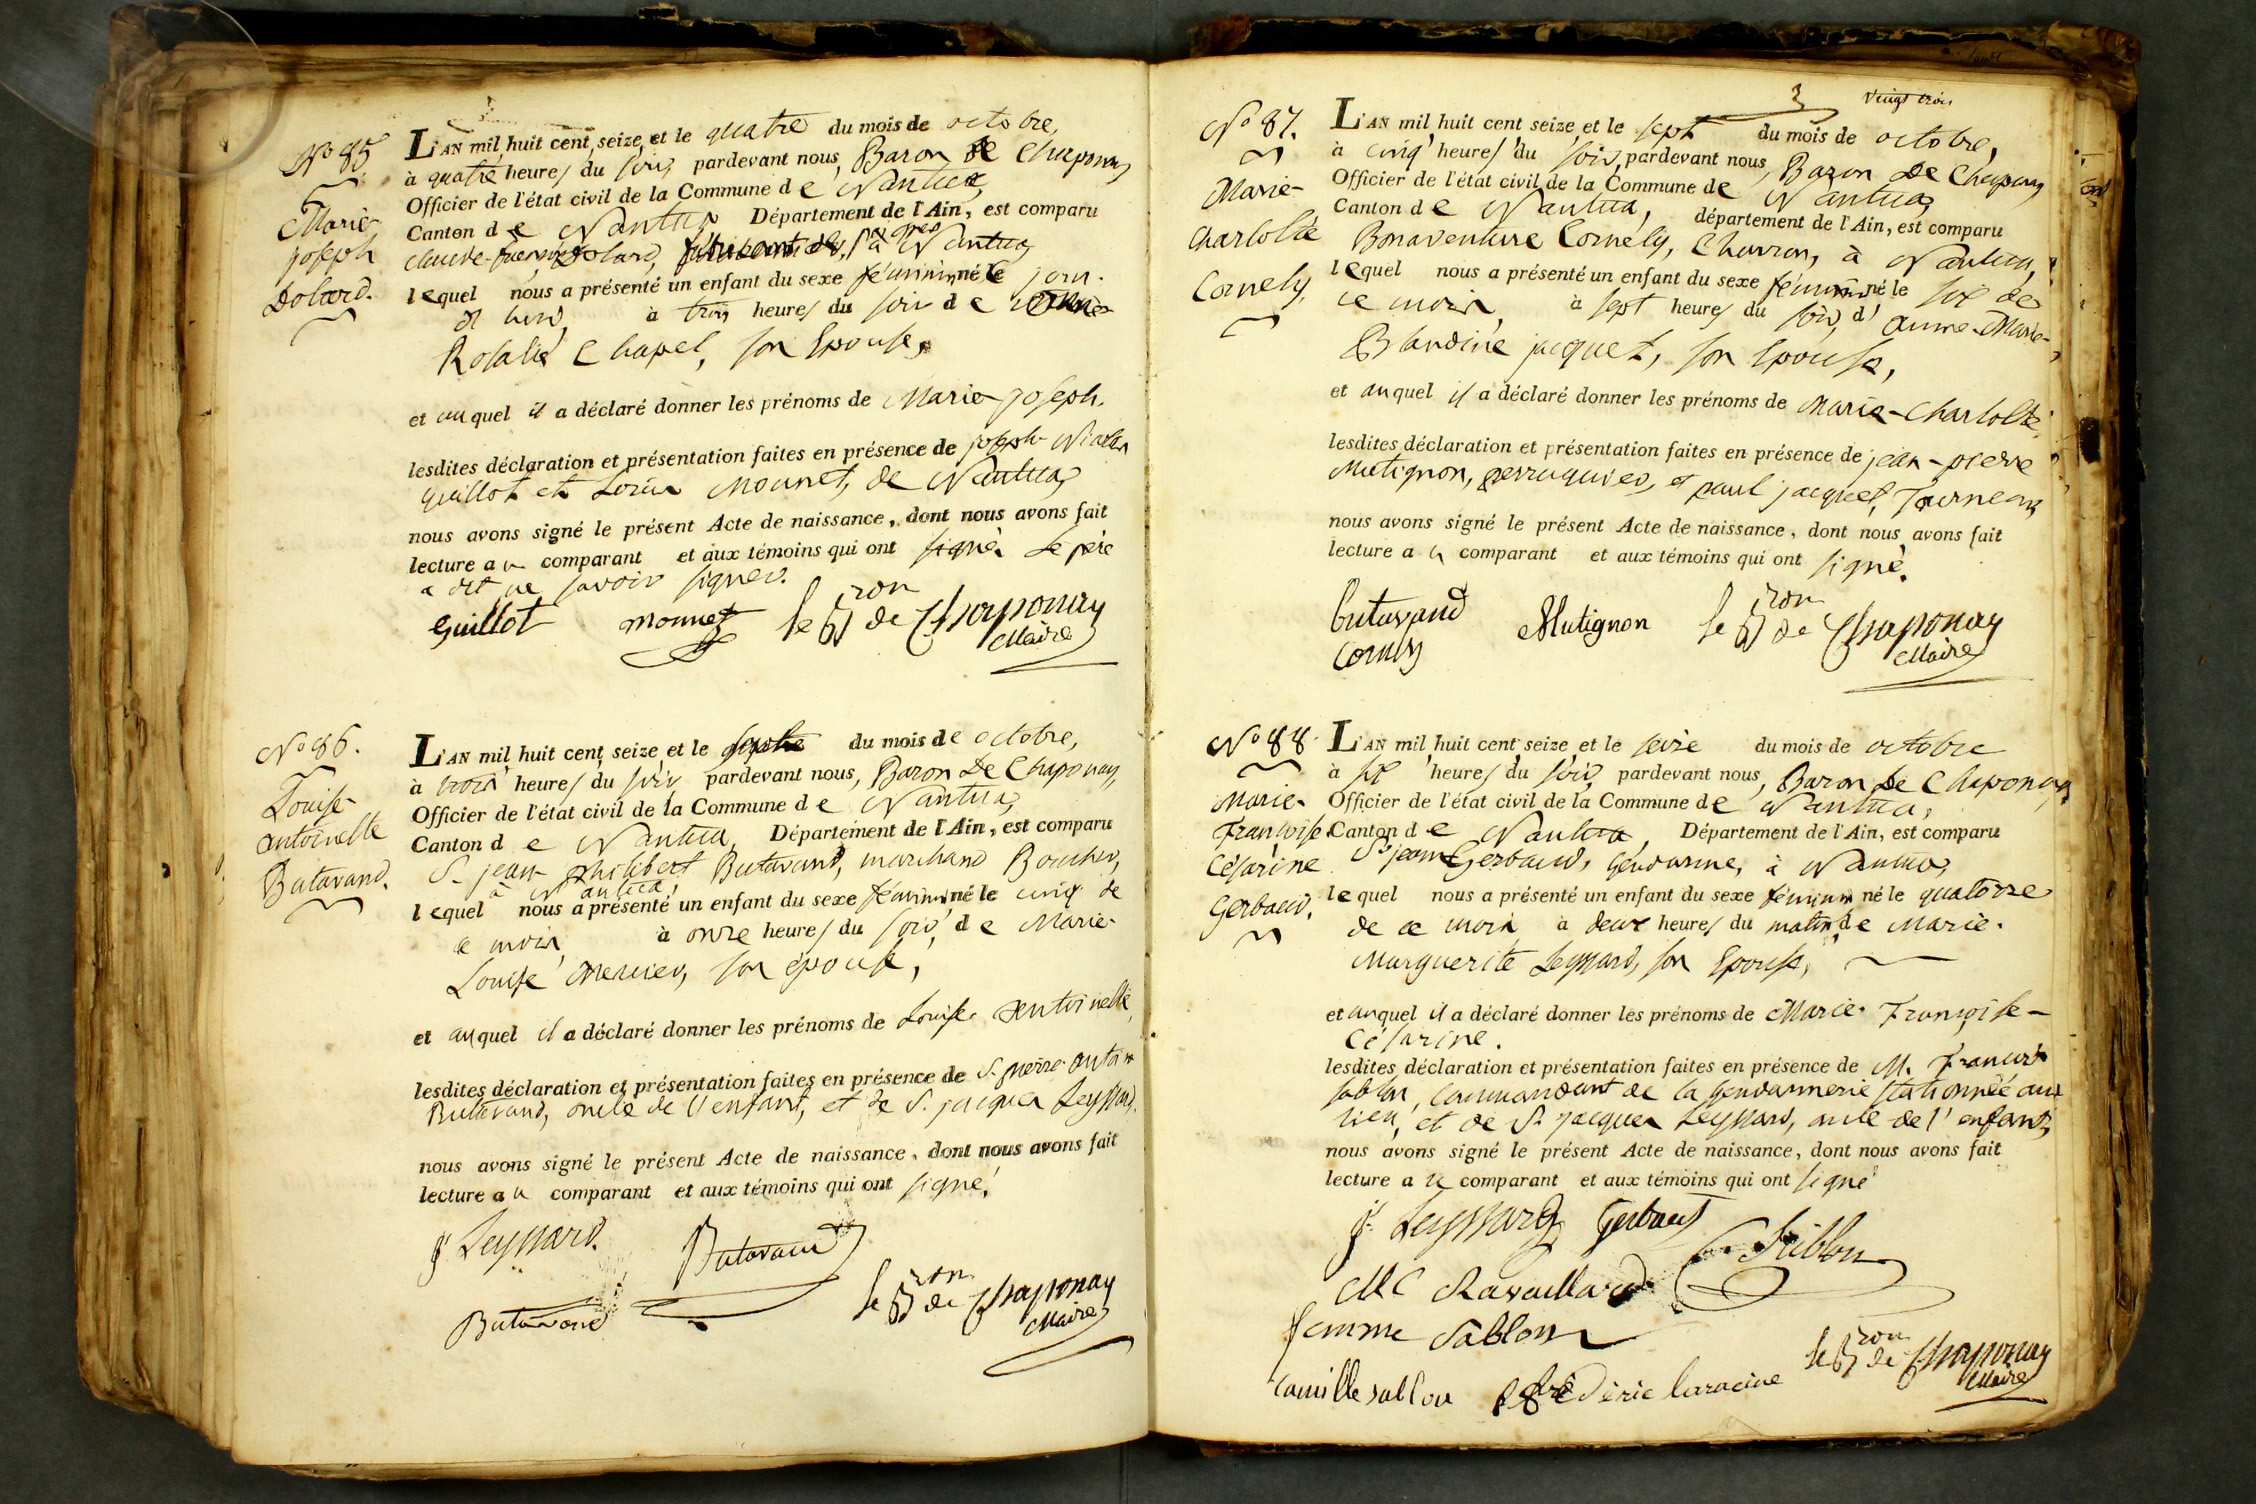 No 85
Marie-
joseph
Dolard.
L'AN mil huit cent seize et le quatre du mois de octobre,
à quatre heures du soir, pardevant nous, Baron De Chaponay
Officier de l'état civil de la Commune de Nantua,
Canton de Nantua, Département de l'Ain, est comparu
Dolard, à Nantua,
lequel nous a présenté un enfant du sexe féminin, né le jour
à trois heures du soir de
Rosalie Chapel, son Epouse,
et auquel il a déclaré donner les prénoms de Marie-joseph.
lesdites déclaration et présentation faites en présence de joseph
guillot et Louis Mounet, de Nantua,
nous avons signé le présent Acte de naissance, dont nous avons fait
lecture au comparant et aux témoins qui ont signé. Le père
a dit ne savoir signer.
Guillot mounet le Bron de Chaponay
Maire
No 86.
Louise-
antoinette
Butavand.
L'AN mil huit cent seize et le du mois de octobre,
à trois heures du soir, pardevant nous, Baron De Chaponay,
Officier de l'état civil de la Commune de Nantua,
Canton de Nantua, Département de l'Ain, est comparu
S. jean-philibert Butavand, marchand Boucher,
à Nantua,
lequel nous a présenté un enfant du sexe féminin, né le cinq de
ce mois, à onze heures du soir, de Marie-
Louise Mercier, son épouse,
et auquel il a déclaré donner les prénoms de Louise-antoinette,
lesdites déclaration et présentation faites en présence de S. pierre-antoine
Butavand, oncle de l'enfant, et de S. jacques Leyssard.
nous avons signé le présent Acte de naissance, dont nous avons fait
lecture au comparant et aux témoins qui ont signé.
js Leyssard. Butavand
Butavand le Bron de Chaponay
Maire
Vingt trois
No 87.
Marie-
Charlotte
Cornely,
L'AN mil huit cent seize et le sept du mois de octobre,
à cinq heures du soir, pardevant nous, Baron De Chaponay
Officier de l'état civil de la Commune de Nantua,
Canton de Nantua, département de l'Ain, est comparu
Bonaventure Cornely, Charron, à Nantua,
lequel nous a présenté un enfant du sexe féminin, né le six de
ce mois, à sept heures du soir, d'anne-Marie-
Blandine jacquet, son Epouse,
et auquel il a déclaré donner les prénoms de Marie-Charlotte.
lesdites déclaration et présentation faites en présence de jean-pierre
Mutignon, perruquier, et paul jacquet, Tourneur,
nous avons signé le présent Acte de naissance, dont nous avons fait
lecture au comparant et aux témoins qui ont signé.
butavand Mutignon le Bron de Chaponay
Cornely Maire
No 88.
Marie-
Françoise
Césarine
Gerbaud.
L'AN mil huit cent seize et le seize du mois de octobre
à six heures du soir, pardevant nous, Baron De Chaponay,
Officier de l'état civil de la Commune de Nantua,
Canton de Nantua, Département de l'Ain, est comparu
Sr jean Gerbaud, gendarme, à Nantua,
lequel nous a présenté un enfant du sexe féminin, né le quatorze
de ce mois à deux heures du matin, de Marie-
Marguerite Leyssard, son Epouse,
et auquel il a déclaré donner les prénoms de Marie-Françoise-
Césarine.
lesdites déclaration et présentation faites en présence de M. François
Sablon, Commandant de la gendarmerie stationnée au
lieu, et de S. jacques Leyssard, oncle de l'enfant,
nous avons signé le présent Acte de naissance, dont nous avons fait
lecture au comparant et aux témoins qui ont signé
js Leyssard Gerbaud Sablon
MC Ravaillard
femme Sablon
Camille sablon frédéric laracine le Bron de Chaponay
Maire